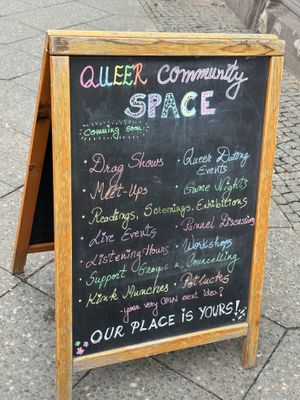 QUEER Community
SPACE
coming soon:
• Drag Shows
• Queer Dating Events
• Meet-Ups
• Game Nights
• Readings, Screenings, Exhibitions
• Live Events
• Pannel Discussions
• Listening Hours
• Workshops
• Support Groups & Councelling
• Kink Munches
• Potlucks
- your very OWN event idea?
OUR PLACE IS YOURS!